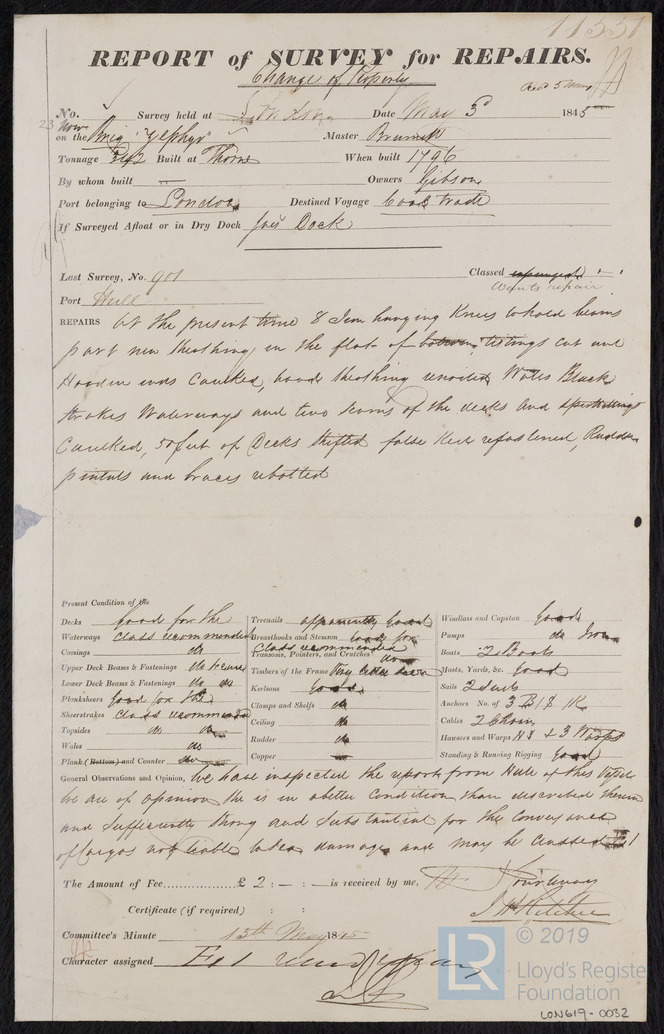 11531
REPORT of SURVEY for REPAIRS.
Change of Property
Recd 5 May
No. Survey held at London Date May 3d 1845
23 Novr
on the Brig "Zephyr" Master
Tonnage 342 Built at Thorne When built 1796
By whom built — Owners Gibson
Port belonging to London Destined Voyage Coal trade
If Surveyed Afloat or in Dry Dock Dock
Last Survey, No. 901 Classed expunged
Wants repair
Port Hull
REPAIRS At the present time 8 Iron hanging Knees to hold beams
part new sheathing in the flat of bottom, listings cut and
Hooden ends Caulked, sheathing Wales Black
strakes Waterways and two seams of the decks and
Caulked, 50 feet of Decks shifted false Keel refastened, Rudder
pintels and braces rebolted
Present Condition of the
Decks Good for the
Waterways class recommended
Comings do
Upper Deck Beams & Fastenings do
Lower Deck Beams & Fastenings do do
Planksheers Good for the
Sheerstrakes class recommend
Topsides do do
Wales do
Plank (Bottom) and Counter do
Treenails apparently Good
Breasthooks and Stemson Good for
Class recommended
Transoms, Pointers, and Crutches
Timbers of the Frame
Keelsons Good
Clamps and Shelfs do
Ceiling do
Rudder do
Copper —
Windlass and Capstan Good
Pumps do Iron
Boats 2 Boats
Masts, Yards, &c. Good
Sails 2 suits
Anchors No. of 3 B 1 S 1 K
Cables 2 Chain
Hawsers and Warps & 3 Warps
Standing & Running Rigging Good
General Observations and Opinion, We have inspected the report from Hull of this Vessel
We are of opinion she is in a better Condition than described therein
and sufficiently strong and Substantial for the Conveyance
of Cargos not liable to Sea damage and may be Classed E 1
The Amount of Fee £ 2 : — : — is received by me,
Certificate (if required) : :
J H Ritchie
Committee's Minute 13th May 1845
Character assigned E 1
LR © 2019
Lloyd's Register
Foundation
LON619-0032